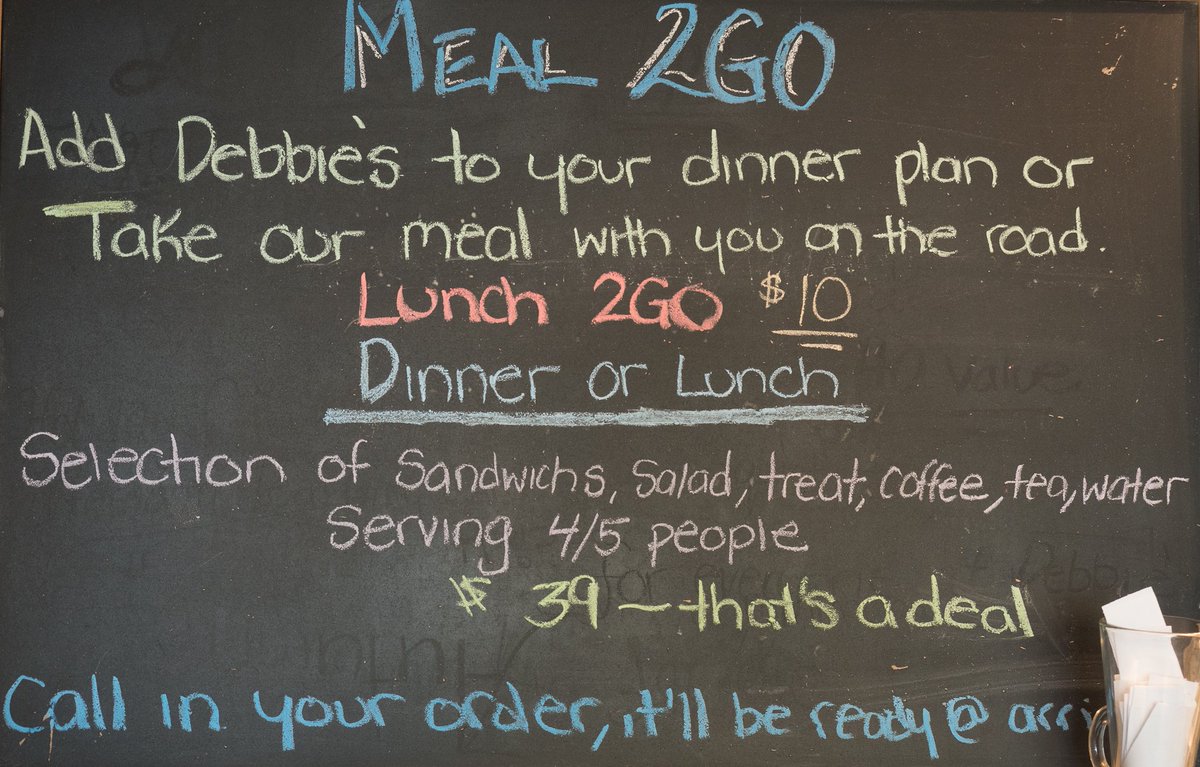 MEAL 2GO
Add Debbie's to your dinner plan or
Take our meal with you on the road.
Lunch 2GO $10
Dinner or Lunch
Selection of Sandwichs, Salad, treat, coffee, tea, water
Serving 4/5 people
$ 39 - that's a deal
Call in your order, it'll be ready @ arri